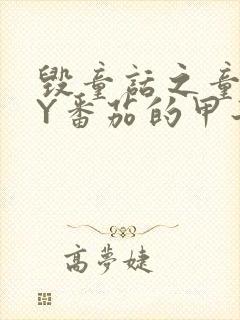 毁童话之童
Y番茄的甲
高梦婕